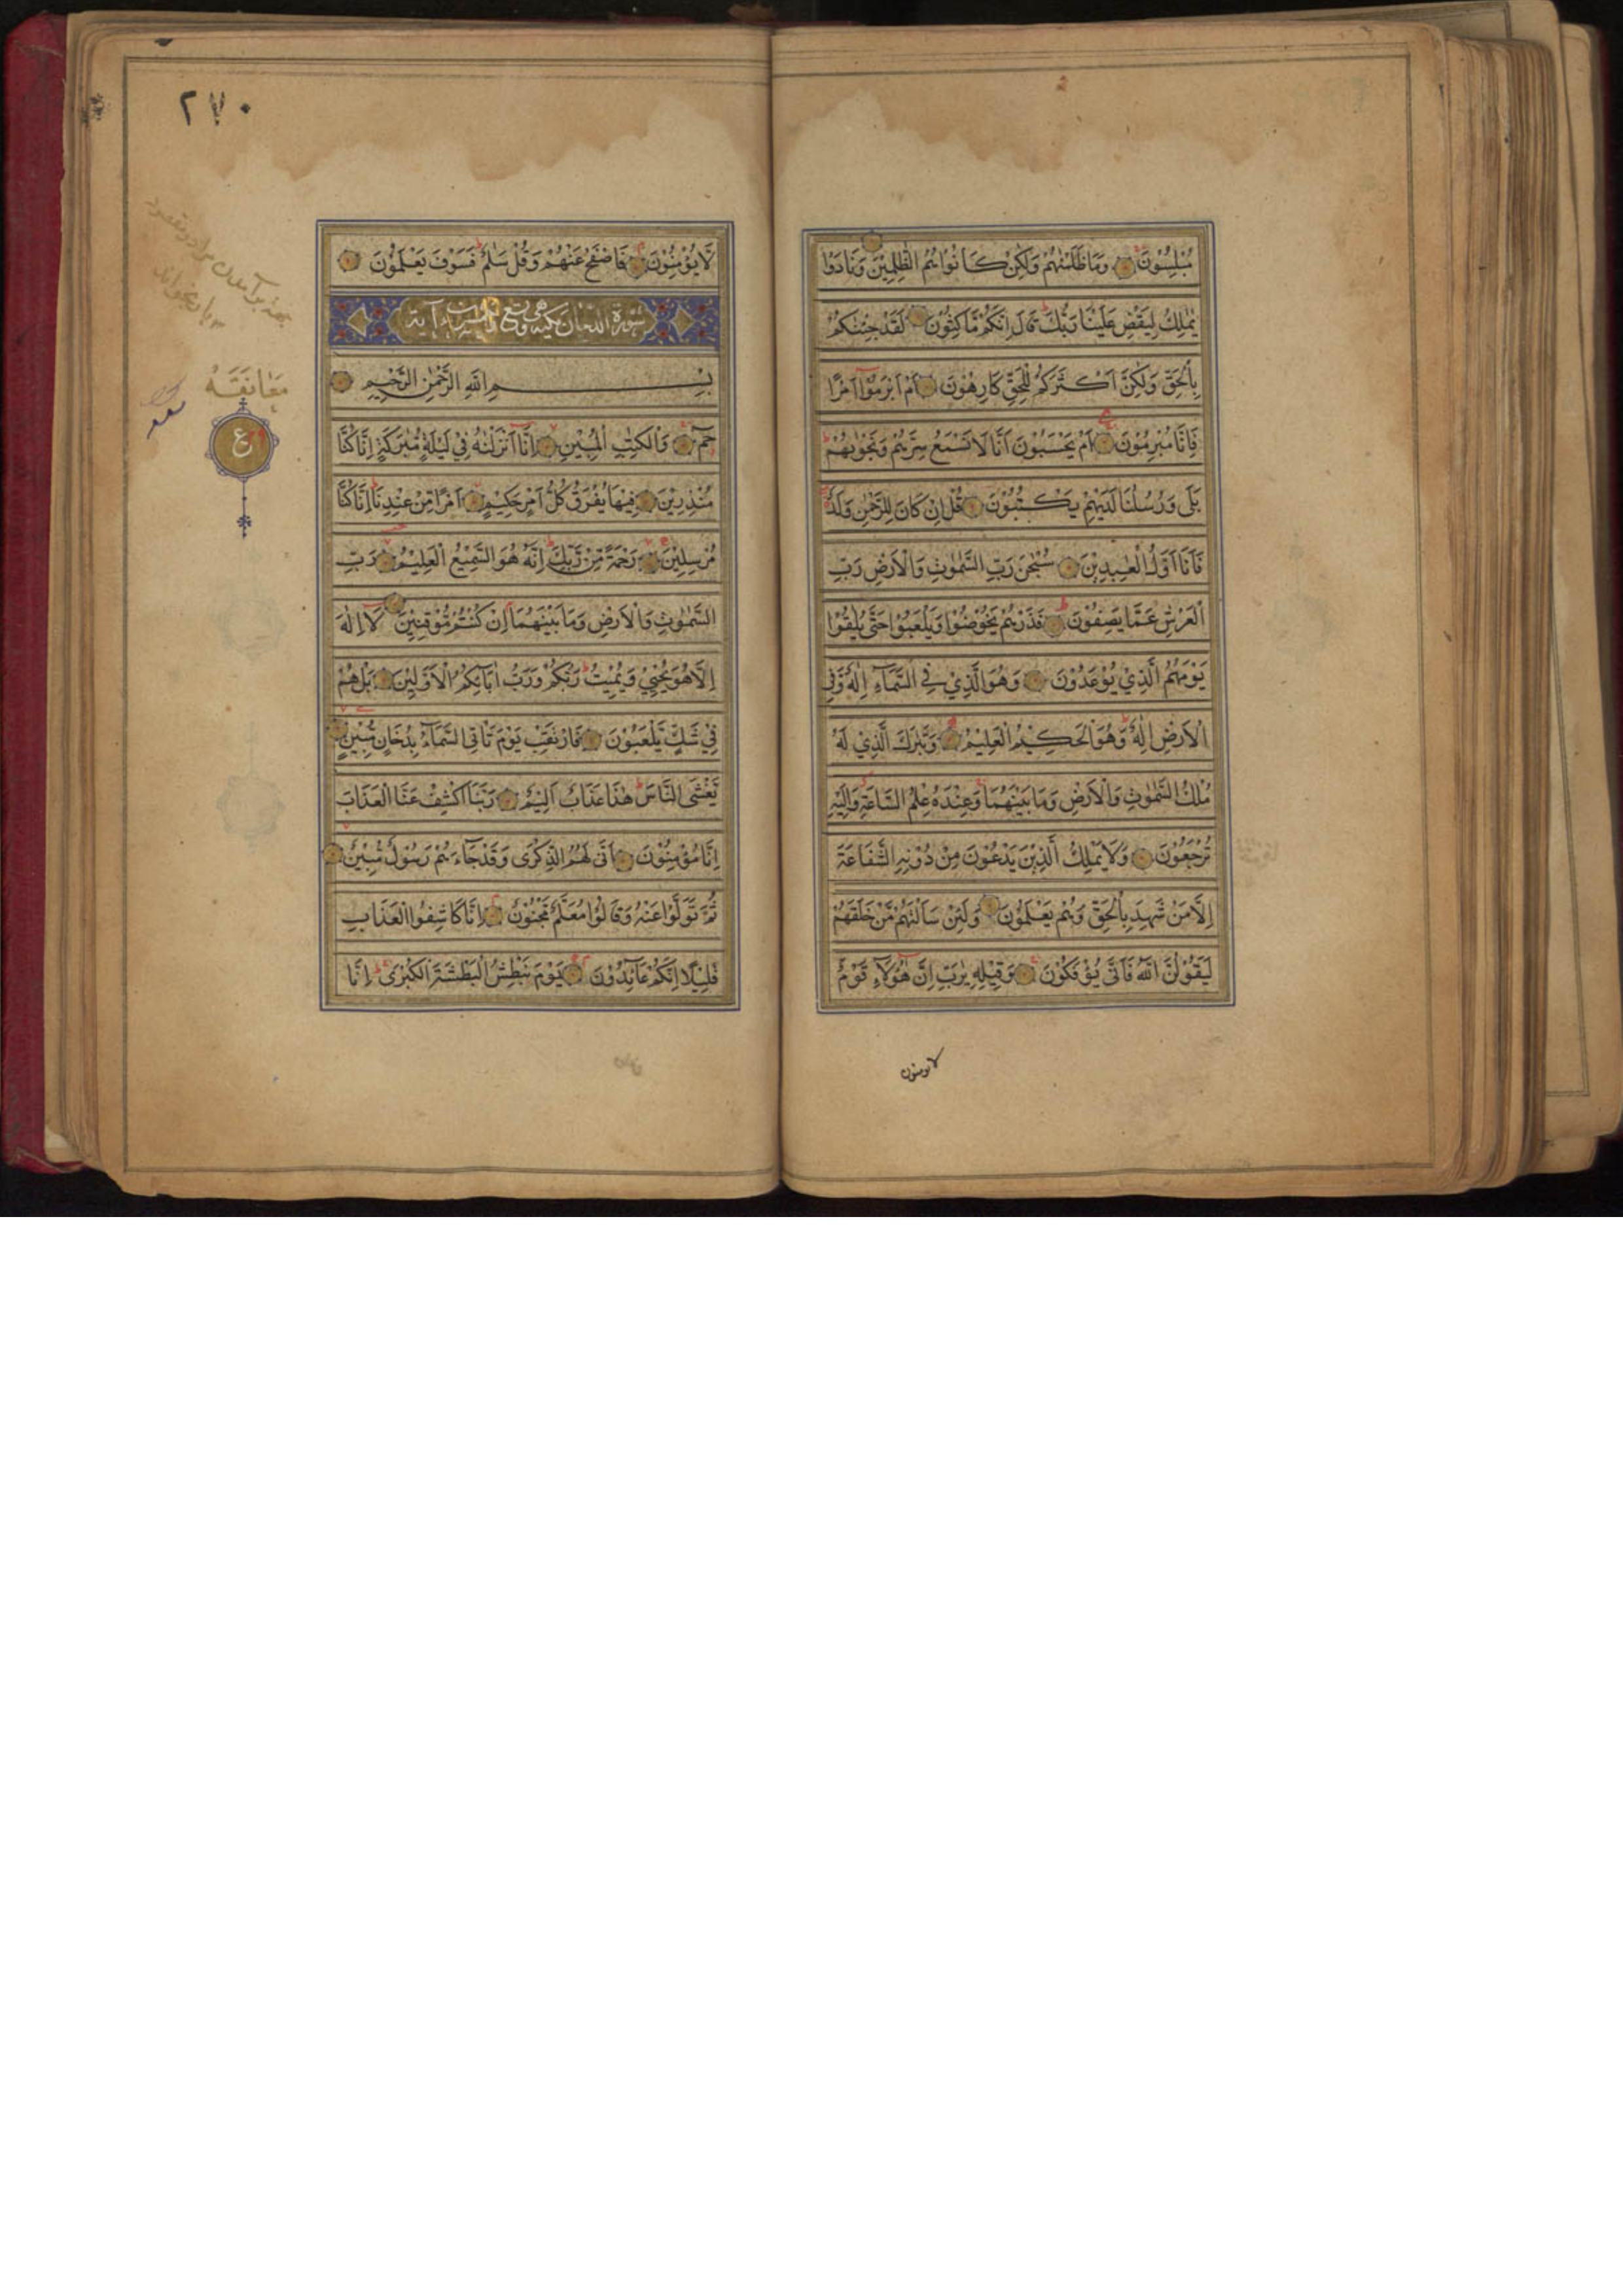 مُبْلِسُوْنَ وَمَا ظَلَمْنٰهُمْ وَلٰكِنْ كَانُوْا هُمُ الظّٰلِمِيْنَ وَنَادَوْا
يٰمٰلِكُ لِيَقْضِ عَلَيْنَا رَبُّكَ قَالَ اِنَّكُمْ مَّاكِثُوْنَ لَقَدْ جِئْنٰكُمْ
بِالْحَقِّ وَلٰكِنَّ اَكْثَرَكُمْ لِلْحَقِّ كَارِهُوْنَ اَمْ اَبْرَمُوْٓا اَمْرًا
فَاِنَّا مُبْرِمُوْنَ اَمْ يَحْسَبُوْنَ اَنَّا لَا نَسْمَعُ سِرَّهُمْ وَنَجْوٰىهُمْ
بَلٰى وَرُسُلُنَا لَدَيْهِمْ يَكْتُبُوْنَ قُلْ اِنْ كَانَ لِلرَّحْمٰنِ وَلَدٌ
فَاَنَا اَوَّلُ الْعٰبِدِيْنَ سُبْحٰنَ رَبِّ السَّمٰوٰتِ وَالْاَرْضِ رَبِّ
الْعَرْشِ عَمَّا يَصِفُوْنَ فَذَرْهُمْ يَخُوْضُوْا وَيَلْعَبُوْا حَتّٰى يُلٰقُوْا
يَوْمَهُمُ الَّذِيْ يُوْعَدُوْنَ وَهُوَ الَّذِيْ فِي السَّمَآءِ اِلٰهٌ وَّفِي
الْاَرْضِ اِلٰهٌ وَهُوَ الْحَكِيْمُ الْعَلِيْمُ وَتَبٰرَكَ الَّذِيْ لَهٗ
مُلْكُ السَّمٰوٰتِ وَالْاَرْضِ وَمَا بَيْنَهُمَا وَعِنْدَهٗ عِلْمُ السَّاعَةِ وَاِلَيْهِ
تُرْجَعُوْنَ وَلَا يَمْلِكُ الَّذِيْنَ يَدْعُوْنَ مِنْ دُوْنِهِ الشَّفَاعَةَ
اِلَّا مَنْ شَهِدَ بِالْحَقِّ وَهُمْ يَعْلَمُوْنَ وَلَئِنْ سَاَلْتَهُمْ مَّنْ خَلَقَهُمْ
لَيَقُوْلُنَّ اللّٰهُ فَاَنّٰى يُؤْفَكُوْنَ وَقِيْلِهٖ يٰرَبِّ اِنَّ هٰٓؤُلَآءِ قَوْمٌ
لا يومنون
٢٧٠
لَّا يُؤْمِنُوْنَ فَاصْفَحْ عَنْهُمْ وَقُلْ سَلٰمٌ فَسَوْفَ يَعْلَمُوْنَ
سورة الدخان مكية وهي تسع آية
بِسْمِ اللّٰهِ الرَّحْمٰنِ الرَّحِيْمِ
حٰمٓ وَالْكِتٰبِ الْمُبِيْنِ اِنَّآ اَنْزَلْنٰهُ فِيْ لَيْلَةٍ مُّبٰرَكَةٍ اِنَّا كُنَّا
مُنْذِرِيْنَ فِيْهَا يُفْرَقُ كُلُّ اَمْرٍ حَكِيْمٍ اَمْرًا مِّنْ عِنْدِنَا اِنَّا كُنَّا
مُرْسِلِيْنَ رَحْمَةً مِّنْ رَّبِّكَ اِنَّهٗ هُوَ السَّمِيْعُ الْعَلِيْمُ رَبِّ
السَّمٰوٰتِ وَالْاَرْضِ وَمَا بَيْنَهُمَا اِنْ كُنْتُمْ مُّوْقِنِيْنَ لَآ اِلٰهَ
اِلَّا هُوَ يُحْيِيْ وَيُمِيْتُ رَبُّكُمْ وَرَبُّ اٰبَآئِكُمُ الْاَوَّلِيْنَ بَلْ هُمْ
فِيْ شَكٍّ يَّلْعَبُوْنَ فَارْتَقِبْ يَوْمَ تَاْتِي السَّمَآءُ بِدُخَانٍ مُّبِيْنٍ
يَّغْشَى النَّاسَ هٰذَا عَذَابٌ اَلِيْمٌ رَبَّنَا اكْشِفْ عَنَّا الْعَذَابَ
اِنَّا مُؤْمِنُوْنَ اَنّٰى لَهُمُ الذِّكْرٰى وَقَدْ جَآءَهُمْ رَسُوْلٌ مُّبِيْنٌ
ثُمَّ تَوَلَّوْا عَنْهُ وَقَالُوْا مُعَلَّمٌ مَّجْنُوْنٌ اِنَّا كَاشِفُوا الْعَذَابِ
قَلِيْلًا اِنَّكُمْ عَآئِدُوْنَ يَوْمَ نَبْطِشُ الْبَطْشَةَ الْكُبْرٰى اِنَّا
مُعَانَقَةٌ
ع